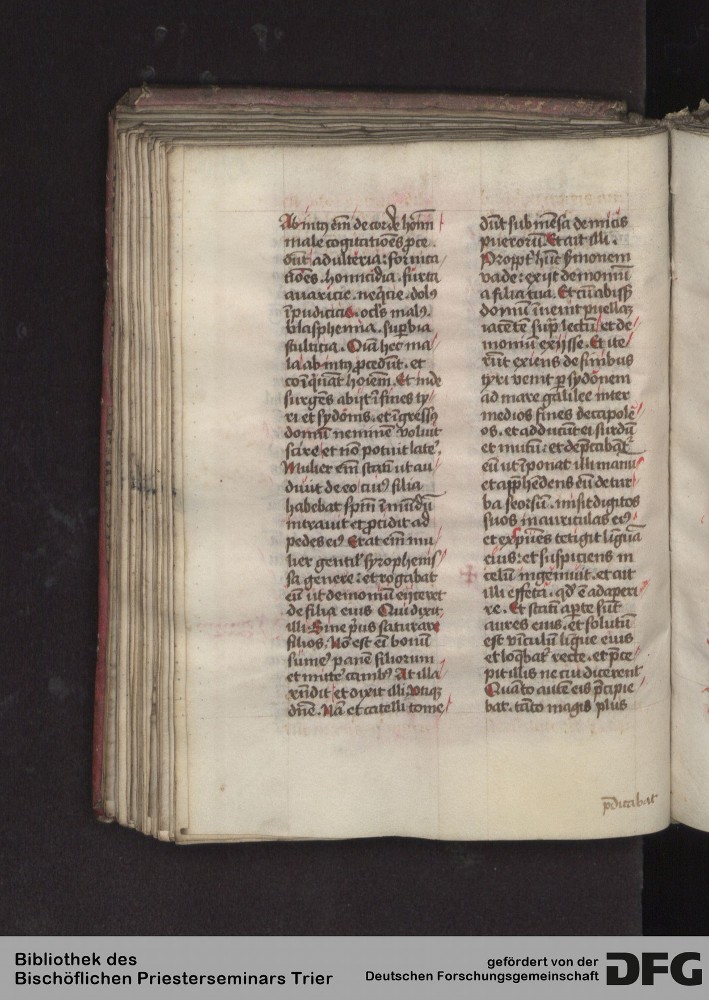 Ab int9 em̄ de corde hoīm
male cogitatiões p̄ce
dūt adulteria: fornica
tiões. homicidia. furta
auaricie. neq̄cie. dol9
īpudicicie. ocls mal9.
blasphemia. suꝑbia
stulticia. Oīa hec ma
la ab int9 p̄cedūt. et
coīq̄nāt hoīem. Et inde
surgēs abijt ī fines ty
ri et sydonis. et īgress9
domū neminē voluit
scire et nō potuit late'.
Mulier em̄ statī ut au
diuit de eo cui9 filia
habebat spm̄ īmūdū
intrauit et p̄cidit ad
pedes ei9 Erat em̄ mu
lier gentil' syrophenis
sa genere: et rogabat
eū ut demoniū eijceret
de filia eius Qui dixit
illi Sine p̄us saturare
filios. Nō est em̄ bonū
sume' panē filiorum
et mitte' canib9 At illa
rn̄dit et dixit illi. Vtiqꝫ
dn̄e. Nā et catelli come
dūt sub mēsa de micis
puerorū. Et ait illi.
Propt' hūc ẜmonem
vade: exijt demoniū
a filia tua. Et cū abissꝫ
domū īuenit puellaꝫ
iacētē sup̄ lectū et de
moniū exijsse. Et ite
rū exiens de finibus
tyri venit ꝑ sydonem
ad mare galilee inter
medios fines decapole
os. et adducūt ei surdū
et mutū: et dep̄cabāt'
eū ut īponat illi manū
et app̄hēdens eū de tur
ba seorsū. misit digitos
suos in auriculas ei9
et expuēs tetigit liguā
eius: et suspiciens in
celū ingemuit. et ait
illi effeta. qd' ē adaperi
re. Et statī aꝑte sūt
aures eius. et solutū
est vīculū ligue eius
et loq̄bat' recte. et p̄ce
pit illis ne cui dicerent
Quāto autē eis p̄cipie
bat. tāto magis plus
p̄dicabāt
Bibliothek des
Bischöflichen Priesterseminars Trier
gefördert von der
Deutschen Forschungsgemeinschaft
DFG